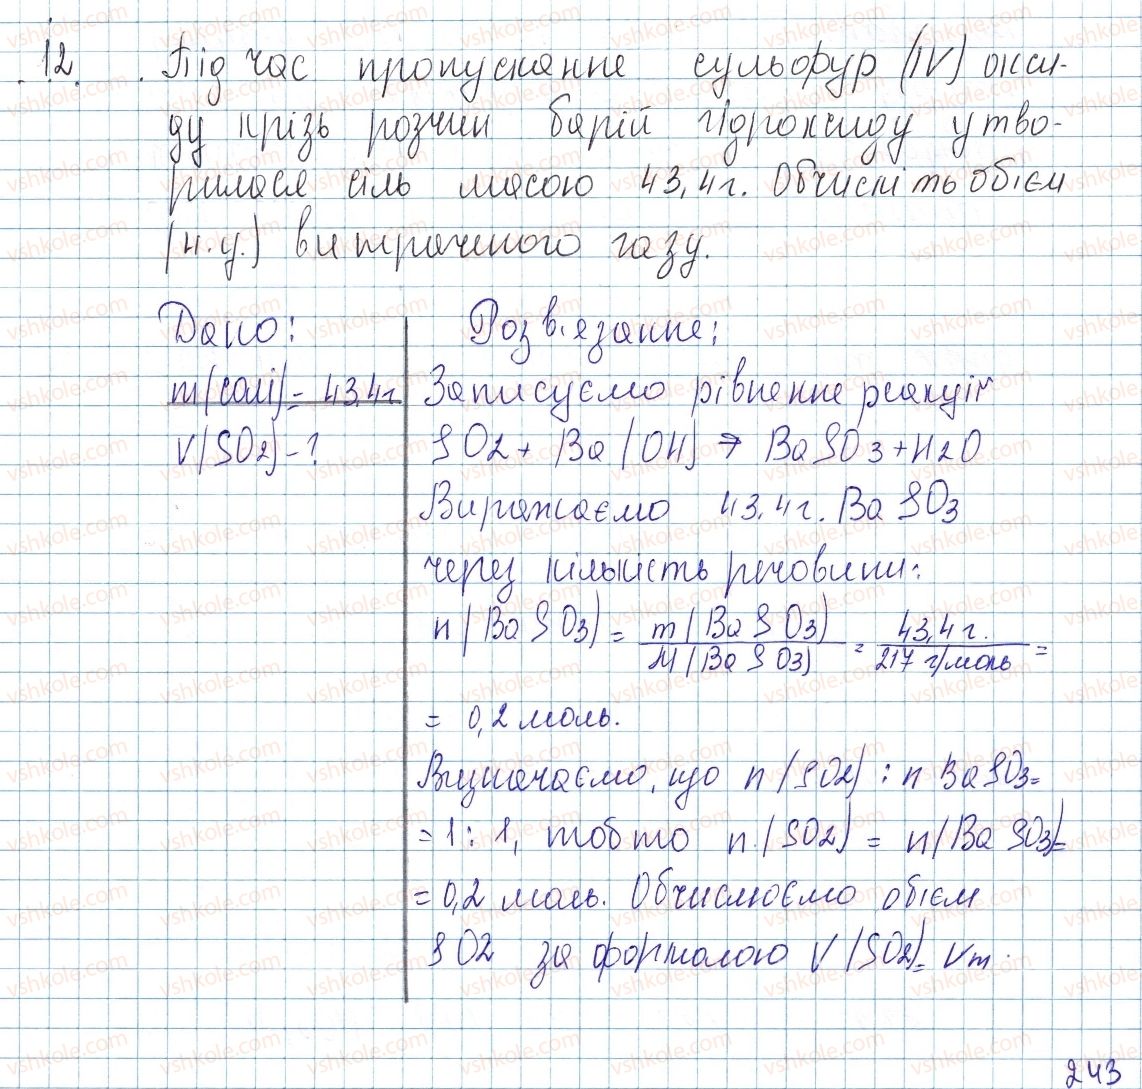 12. Під час пропускання сульфур (IV) окси-
ду крізь розчин барій гідроксиду утво-
рилася сіль масою 43,4г. Обчисліть обієм
(н.у.) витраченого газу.
Дано:
m(солі) = 43,4г
V(SO2) - ?
Розв'язання:
Записуємо рівняння реакції
SO2 + Ba(OH) → BaSO3 + H2O
Виражаємо 43,4г. BaSO3
через кількість речовини:
n(BaSO3) = m(BaSO3) / M(BaSO3) = 43,4г. / 217 г/моль =
= 0,2 моль.
Визначаємо, що n(SO2) : n BaSO3 =
= 1 : 1, тобто n(SO2) = n(BaSO3) =
= 0,2 моль. Обчислюємо обієм
SO2 за формолою V(SO2) = Vm.
243
vshkole.com